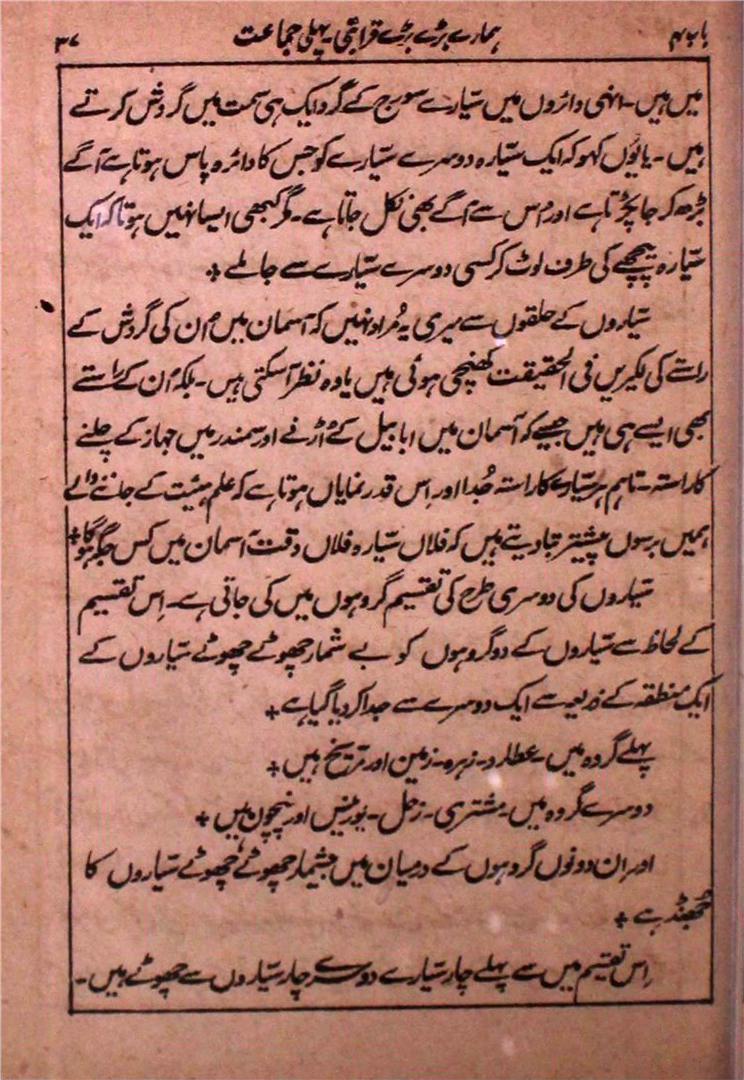 باب ۴ ہمارے بڑے بڑے قرابتی۔ پہلی جماعت ۳۷
میں ہیں۔ انہی دائروں میں سیّارے سورج کے گرد ایک ہی سمت میں گردش کرتے
ہیں۔ یا یُوں کہو کہ ایک سیّارہ دوسرے سیّارے کو جس کا دائرہ پاس ہوتا ہے آگے
بڑھ کر جا پکڑتا ہے اور اُس سے آگے بھی نکل جاتا ہے۔ مگر کبھی ایسا نہیں ہوتا کہ ایک
سیّارہ پیچھے کی طرف لوٹ کر کسی دوسرے سیّارے سے جا ملے +
سیّاروں کے حلقوں سے میری یہ مُراد نہیں کہ آسمان میں اُن کی گردش کے
راستے کی لکیریں فی الحقیقت کھنچی ہوئی ہیں یا وہ نظر آسکتی ہیں۔ بلکہ اُن کے راستے
بھی ایسے ہی ہیں جیسے کہ آسمان میں ابابیل کے اُڑنے اور سمندر میں جہاز کے چلنے
کا راستہ۔ تاہم ہر سیّارے کا راستہ جُدا اور اِس قدر نمایاں ہوتا ہے کہ علم ہیئت کے جاننے والے
ہمیں برسوں پیشتر بتا دیتے ہیں کہ فلاں سیّارہ فلاں وقت آسمان میں کس جگہ ہوگا +
سیّاروں کی دوسری طرح کی تقسیم گروہوں میں کی جاتی ہے۔ اِس تقسیم
کے لحاظ سے سیّاروں کے دو گروہوں کو بے شمار چھوٹے چھوٹے سیّاروں کے
ایک منطقہ کے ذریعہ سے ایک دوسرے سے جدا کر دیا گیا ہے +
پہلے گروہ میں۔ عطارد۔ زہرہ۔ زمین اور مریخ ہیں +
دوسرے گروہ میں۔ مشتری۔ زحل۔ یورینس اور نیپچون ہیں +
اور اِن دونوں گروہوں کے درمیان میں بیشمار چھوٹے چھوٹے سیّاروں کا
جُھنڈ ہے +
اِس تقسیم میں سے پہلے چار سیّارے دوسرے چار سیّاروں سے چھوٹے ہیں۔